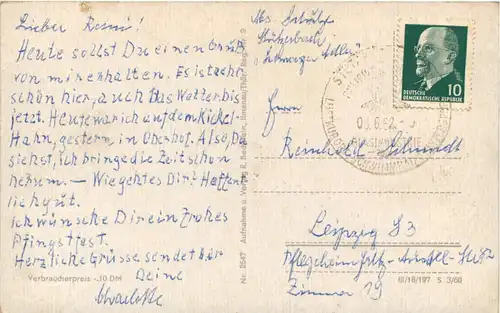 Lieber Reini!
Heute sollst Du einen Gruß
von mir erhalten. Es ist sehr
schön hier, auch das Wetter bis
jetzt. Heute war ich auf dem Kickel-
Hahn, gestern in Oberhof. Also, Du
siehst, ich bringe die Zeit schon
herum. — Wie geht es Dir? Hoffent-
lich gut.
Ich wünsche Dir ein Frohes
Pfingstfest.
Herzliche Grüsse sendet Dir
Deine
Charlotte
Verbraucherpreis -.10 DM
Nr. 2547 Aufnahme u. Verlag
Stützerbach
Schwarzer Adler
10
DEUTSCHE
DEMOKRATISCHE REPUBLIK
Herrn
Reinhold Schmidt
Leipzig S3
Pflegeheim
Zimmer 19
III/18/197 S 3/60